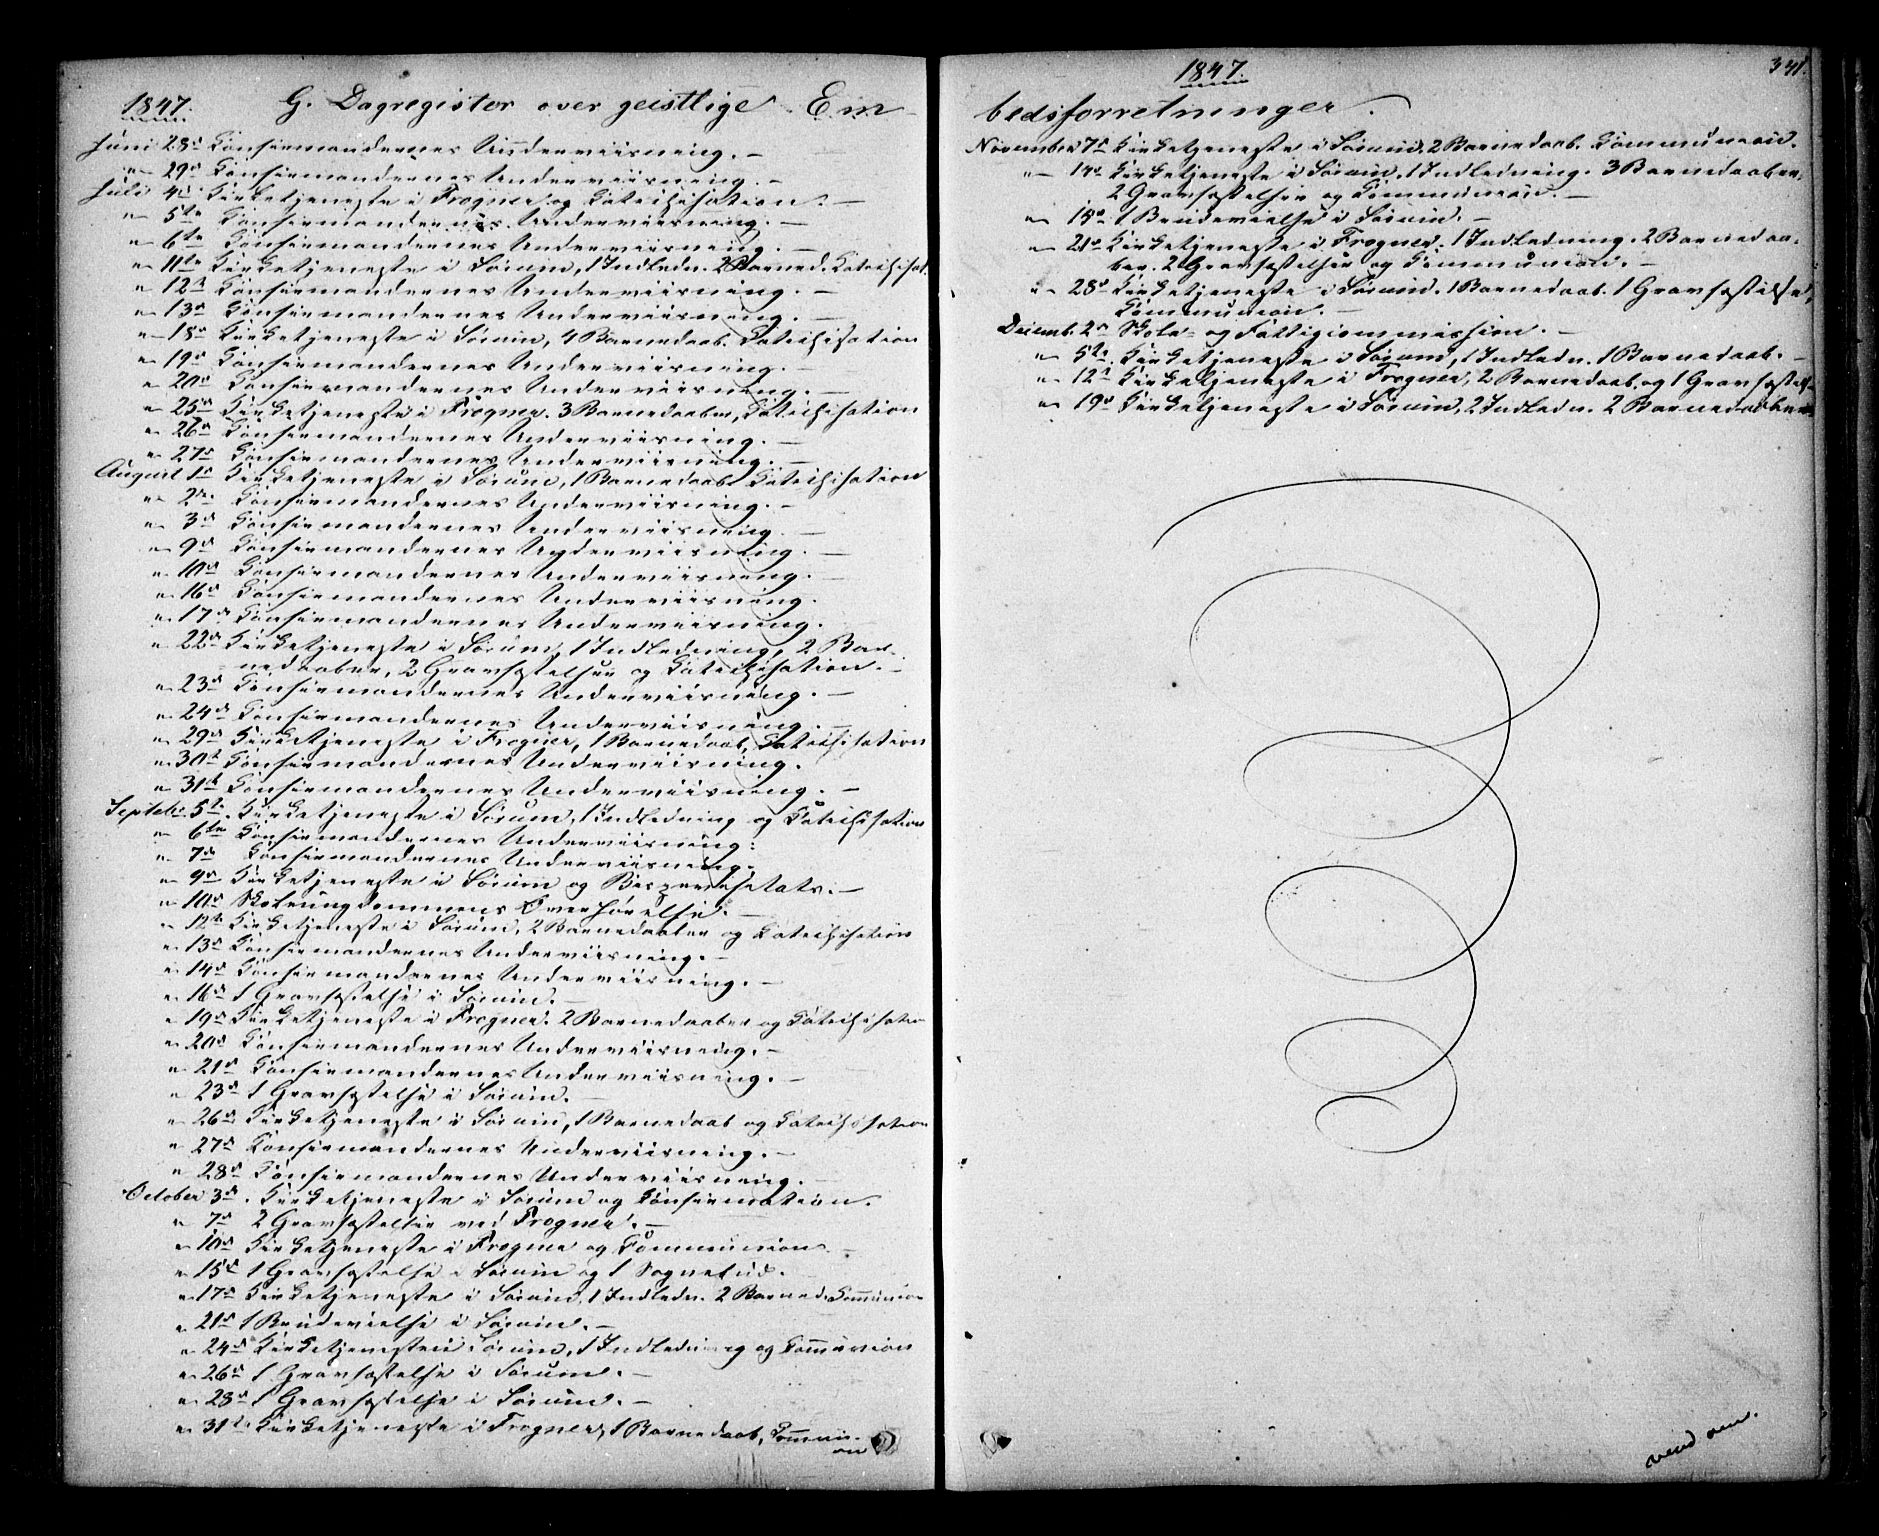 1847. G. Dagregister over geistlige Em-
Juni 28d Confirmandernes Underviisning. —
"— 29d Confirmandernes Underviisning. —
Juli 4d Kirketjeneste i Frogner og Catechisation. —
"— 5te Confirmandernes Underviisning. —
"— 6te Confirmandernes Underviisning. —
"— 11te Kirketjeneste i Sørum, 1 Indledn. 2 Barned. Catechisat.
"— 12d Confirmandernes Underviisning. —
"— 13d Confirmandernes Underviisning. —
"— 18d Kirketjeneste i Sørum, 4 Barnedaab. Catechisation
"— 19d Confirmandernes Underviisning. —
"— 20d Confirmandernes Underviisning. —
"— 25d Kirketjeneste i Frogner. 3 Barnedaaber, Catechisation
"— 26d Confirmandernes Underviisning. —
"— 27d Confirmandernes Underviisning. —
August 1d Kirketjeneste i Sørum, 1 Barnedaab. Catechisation
"— 2den Confirmandernes Underviisning. —
"— 3d Confirmandernes Underviisning. —
"— 9d Confirmandernes Underviisning. —
"— 10d Confirmandernes Underviisning. —
"— 16d Confirmandernes Underviisning.
"— 17d Confirmandernes Underviisning.
"— 22d Kirketjeneste i Sørum, 1 Indledning, 2 Bar-
nedaaber, 2 Gravfæstelser og Catechisation. —
"— 23d Confirmandernes Underviisning. —
"— 24d Confirmandernes Underviisning. —
"— 29d Kirketjeneste i Frogner, 1 Barnedaab, Catechisation
"— 30te Confirmandernes Underviisning.
"— 31te Confirmandernes Underviisning. —
Septeb. 5te Kirketjeneste i Sørum, 1 Indledning og Catechisation
"— 6te Confirmandernes Underviisning.
"— 7de Confirmandernes Underviisning.
"— 9d Kirketjeneste i Sørum og Bispevisetats. —
"— 10d Skoleungdommens Overhørelse. —
"— 12te Kirketjeneste i Sørum, 2 Barnedaaber og Catechisation
"— 13d Confirmandernes Underviisning. —
"— 14d Confirmandernes Underviisning. —
"— 16d 1 Gravfæstelse i Sørum. —
"— 19d Kirketjeneste i Frogner. 2 Barnedaaber og Catechisation
"— 20d Confirmandernes Underviisning. —
"— 21d Confirmandernes Underviisning. —
"— 23d 1 Gravfæstelse i Sørum. —
"— 26d Kirketjeneste i Sørum, 1 Barnedaab og Catechisation
"— 27d Confirmandernes Underviisning. —
"— 28d Confirmandernes Underviisning. —
October 3d. Kirketjeneste i Sørum og Confirmation.
"— 7d 2 Gravfæstelser ved Frogner. —
"— 10d Kirketjeneste i Frogner og Communion. —
"— 15d 1 Gravfæstelse i Sørum og 1 Sognebud. —
"— 17d Kirketjeneste i Sørum, 1 Indledn. 2 Barned. Communion
"— 21d 1 Brudevielse i Sørum. —
"— 24d Kirketjenesten i Sørum, 1 Indledning og Communion
"— 26d 1 Gravfæstelse i Sørum. —
"— 28d 1 Gravfæstelse i Sørum. —
"— 31te Kirketjeneste i Frogner, 1 Barnedaab, Commun-
on
1847. 341.
bedsforretninger.
November 7d Kirketjeneste i Sørum. 2 Barnedaab. Communion.
"— 14d Kirketjeneste i Sørum. 1 Indledning. 3 Barnedaaber,
2 Gravfæstelser og Communion. —
"— 18d 1 Brudevielse i Sørum. —
"— 21d Kirketjeneste i Frogner. 1 Indledning. 2 Barnedaa-
ber. 2 Gravfæstelser og Communion. —
"— 28d Kirketjeneste i Sørum. 1 Barnedaab. 1 Gravfæstelse,
Communion. —
Decemb. 2d Skole- og Fattigcommission. —
"— 5te Kirketjeneste i Sørum, 1 Indledn. 1 Barnedaab. —
"— 12d Kirketjeneste i Frogner, 2 Barnedaab. og 1 Gravfæstelse
"— 19d Kirketjeneste i Sørum, 2 Indledn. 2 Barnedaaber
vend om.